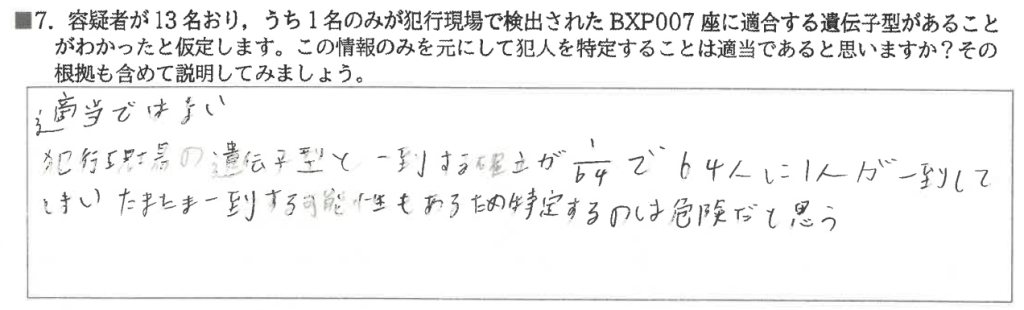 ■7. 容疑者が13名おり,うち1名のみが犯行現場で検出されたBXP007座に適合する遺伝子型があること
がわかったと仮定します。この情報のみを元にして犯人を特定することは適当であると思いますか?その
根拠も含めて説明してみましょう。
適当ではない
犯行現場の遺伝子型と一到する確立が 1/64 で 64人に1人が一到して
しまい たまたま一到する可能性もあるため特定するのは危険だと思う